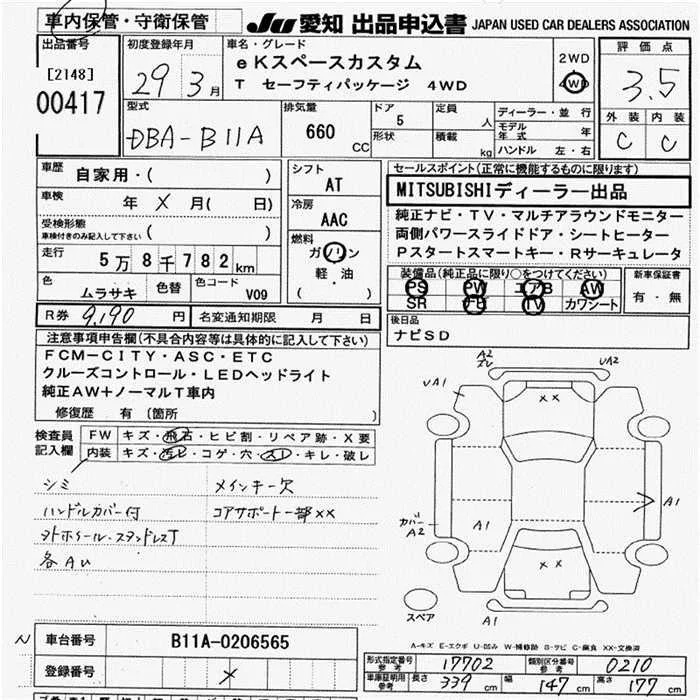 車内保管・守衛保管
JU 愛知 出品申込書 JAPAN USED CAR DEALERS ASSOCIATION
出品番号
[2148]
00417
初度登録年月
29 3月
車名・グレード
eKスペースカスタム
T セーフティパッケージ 4WD
2WD
4WD
評価点
3.5
外装 内装
C C
型式
DBA-B11A
排気量
660
CC
ドア
5
形状
定員
人
積載
kg
ディーラー・並行
モデル年式 年
ハンドル 左・右
車歴
自家用・( )
車検
年 × 月 ( 日)
受検形態
車検付きのみ記入して下さい ( )
走行
5万8千782km
色
ムラサキ
色替
色コード
V09
シフト
AT
冷房
AAC
燃料
ガソリン
軽・油
( )
セールスポイント(正常に機能するものに限ります)
MITSUBISHIディーラー出品
純正ナビ・TV・マルチアラウンドモニター
両側パワースライドドア・シートヒーター
PスタートスマートキーRサーキュレータ
装備品(純正品に限り○をつけてください)
PS PW エアB AW
SR TV カワシート
新車保証書
有・無
R券 9,190 円
名変通知期限 月 日
後日品
ナビSD
注意事項申告欄(不具合内容等は具体的に記入して下さい)
FCM-CITY・ASC・ETC
クルーズコントロール・LEDヘッドライト
純正AW+ノーマルT車内
修復歴 有 (箇所 )
検査員
記入欄
FW キズ・飛石・ヒビ割・リペア跡・X要
内装 キズ・汚レ・コゲ・穴・スレ・キレ・破レ
シミ
メインキー欠
ハンドルカバー付
コアサポート一部××
各AU
A2
UA2
UA1
××
カバー
A2
A1
A1
××
A1
スペア
A-キズ E-エクボ U-凹み W-補修跡 S-サビ C-腐食 XX-交換済
N
車台番号
B11A-0206565
登録番号
×
形式指定番号
参考
17702
類別区分番号
参考
0210
車庫証明用
参考
長さ 339 cm
幅 147 cm
高さ 177 cm